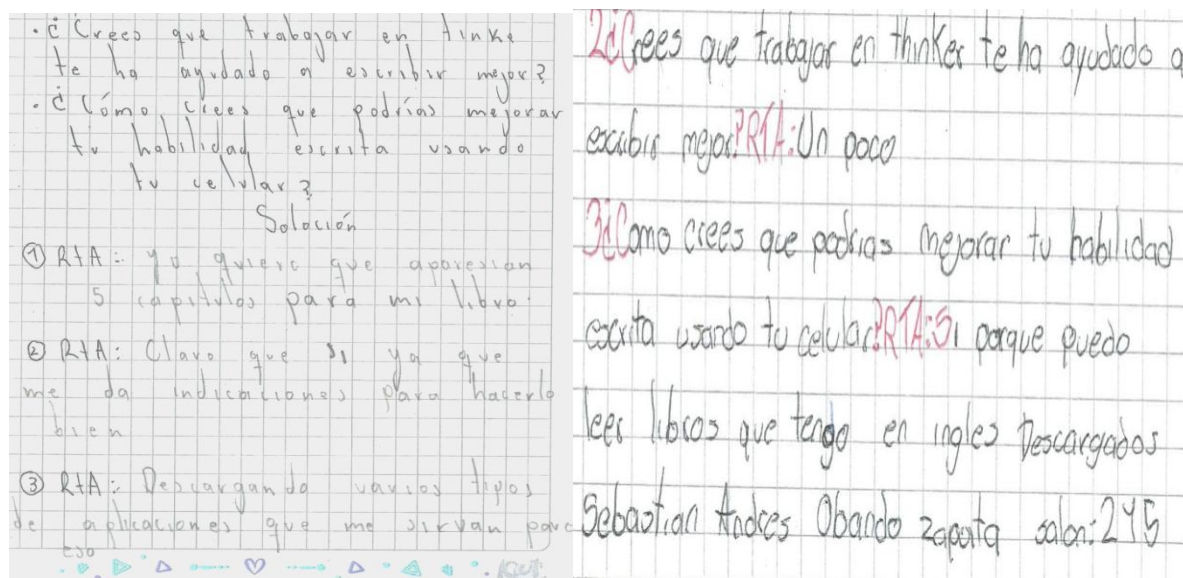 · ¿Crees que trabajar en tinke
te ha ayudado a escribir mejor?
· ¿Cómo, crees que podrías mejorar
tu habilidad escrita usando
tu celular?
Solución
① RtA: yo quiero que aparescan
5 capitulos para mi libro.
② RtA: Claro que si ya que
me da indicaciones para hacerlo
bien
③ RtA: Descargando varios tipos
de aplicaciones que me sirvan para
eso
2¿Crees que trabajar en thinker te ha ayudado a
escribir mejor?RTA:Un poco
3¿Como crees que podrias mejorar tu habilidad
escrita usando tu celular?RTA:Si porque puedo
leer libros que tengo en ingles Descargados
Sebastian Andres Obando zapata salon:245